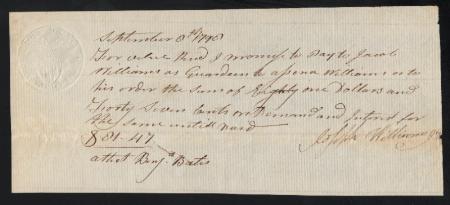 September 8th 1798
For value Recd I promise to Pay to Jacob
Williams as Guardeen to Williams or to
his order the Sum of Eighty one Dollars and
Forty Seven Cents on Demand and Intrest for
the same untill paid
$ 81-47
Joseph Williams Jr
attest Benja Bates